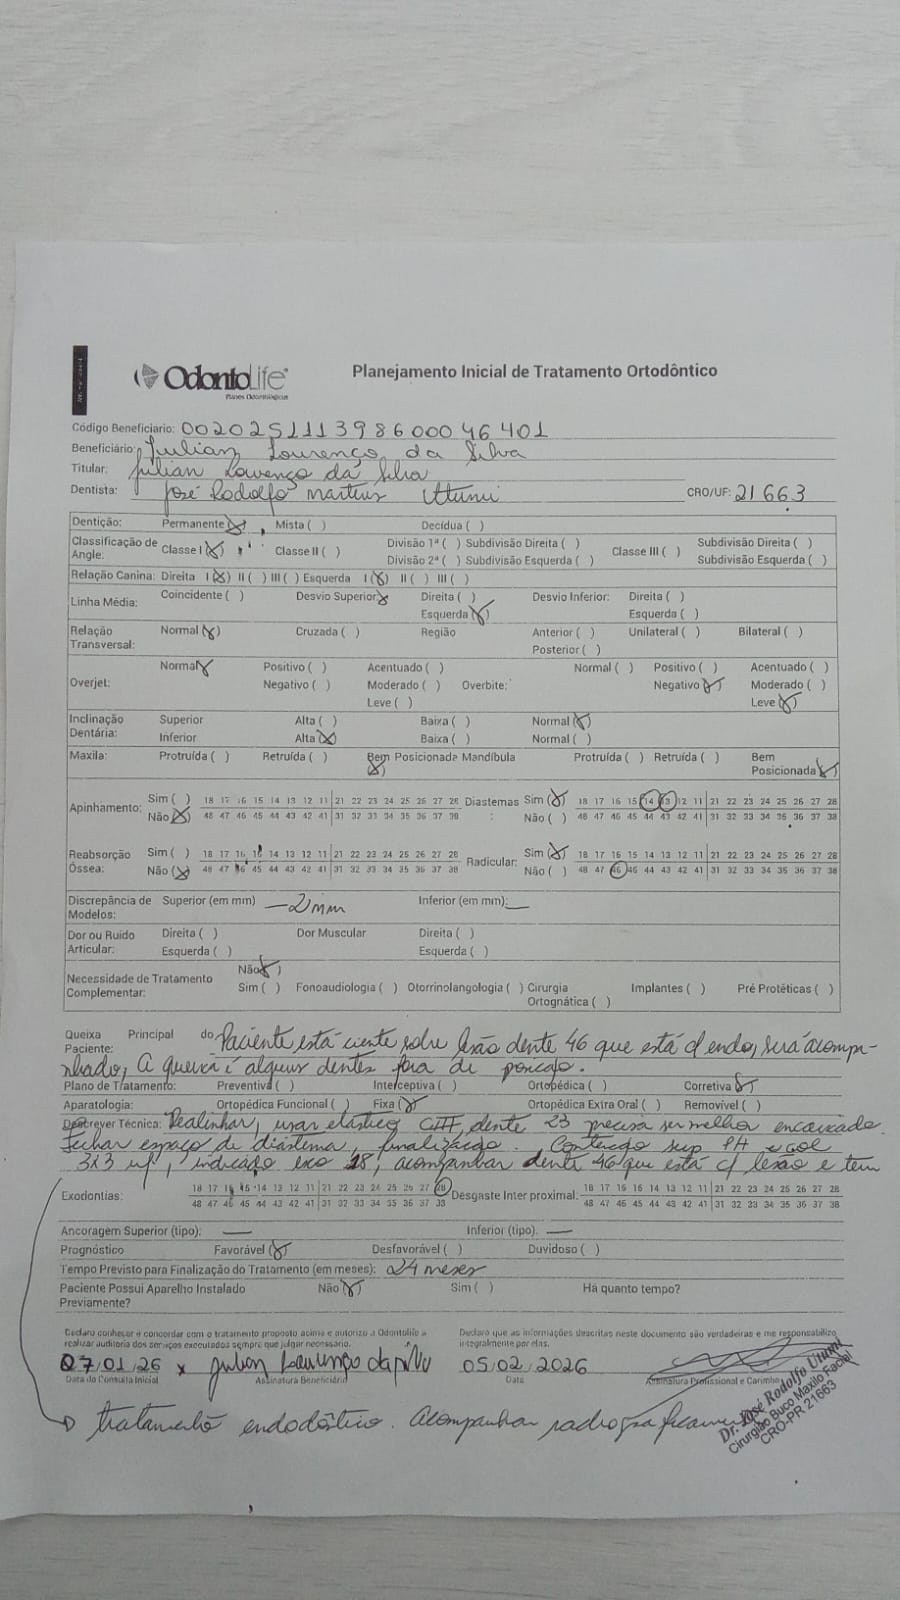 OdontoLife
Planos Odontológicos
Planejamento Inicial de Tratamento Ortodôntico
Código Beneficiario: 00202511139860004 6 401
Beneficiário: Julian Lourenço da Silva
Titular: Julian Lourenço da Silva
Dentista: José Rodolfo Martins Utumi CRO/UF: 21663
Dentição: Permanente (X) Mista ( ) Decídua ( )
Classificação de Angle: Classe I (X) Classe II ( ) Divisão 1ª ( ) Subdivisão Direita ( ) Classe III ( ) Subdivisão Direita ( )
Divisão 2ª ( ) Subdivisão Esquerda ( ) Subdivisão Esquerda ( )
Relação Canina: Direita I (X) II ( ) III ( ) Esquerda I (X) II ( ) III ( )
Linha Média: Coincidente ( ) Desvio Superior X Direita ( ) Desvio Inferior: Direita ( )
Esquerda (X) Esquerda ( )
Relação Transversal: Normal (X) Cruzada ( ) Região Anterior ( ) Unilateral ( ) Bilateral ( )
Posterior ( )
Overjet: Normal X Positivo ( ) Acentuado ( ) Overbite: Normal ( ) Positivo ( ) Acentuado ( )
Negativo ( ) Moderado ( ) Negativo (X) Moderado ( )
Leve ( ) Leve (X)
Inclinação Dentária: Superior Alta ( ) Baixa ( ) Normal (X)
Inferior Alta (X) Baixa ( ) Normal ( )
Maxila: Protruída ( ) Retruída ( ) Bem Posicionada (X) Mandíbula Protruída ( ) Retruída ( ) Bem Posicionada (X)
Apinhamento: Sim ( ) 18 17 16 15 14 13 12 11 21 22 23 24 25 26 27 28 Diastemas: Sim (X) 18 17 16 15 14 13 12 11 21 22 23 24 25 26 27 28
Não (X) 48 47 46 45 44 43 42 41 31 32 33 34 35 36 37 38 Não ( ) 48 47 46 45 44 43 42 41 31 32 33 34 35 36 37 38
Reabsorção Óssea: Sim ( ) 18 17 16 15 14 13 12 11 21 22 23 24 25 26 27 28 Radicular: Sim (X) 18 17 16 15 14 13 12 11 21 22 23 24 25 26 27 28
Não (X) 48 47 46 45 44 43 42 41 31 32 33 34 35 36 37 38 Não ( ) 48 47 46 45 44 43 42 41 31 32 33 34 35 36 37 38
Discrepância de Modelos: Superior (em mm) -2mm Inferior (em mm): —
Dor ou Ruido Articular: Direita ( ) Dor Muscular Direita ( )
Esquerda ( ) Esquerda ( )
Necessidade de Tratamento Complementar: Não (X)
Sim ( ) Fonoaudiologia ( ) Otorrinolangologia ( ) Cirurgia Ortognática ( ) Implantes ( ) Pré Protéticas ( )
Queixa Principal do Paciente: Paciente está ciente sobre lesão dente 46 que está c/ endo, será acompa-
nhado, A queixa é alguns dentes fora de posição.
Plano de Tratamento: Preventiva ( ) Interceptiva ( ) Ortopédica ( ) Corretiva (X)
Aparatologia: Ortopédica Funcional ( ) Fixa (X) Ortopédica Extra Oral ( ) Removível ( )
Descrever Técnica: Realinhar, usar elástico dente 23 precisa ser melhor encaixado.
Fechar espaço de diastema, finalização. Contenção sup PH e col
3x3 inf, indicado exo 28, acompanhar dente 46 que está c/ lesão e tem
Exodontias: 18 17 16 15 14 13 12 11 21 22 23 24 25 26 27 28 Desgaste Inter proximal: 18 17 16 15 14 13 12 11 21 22 23 24 25 26 27 28
48 47 46 45 44 43 42 41 31 32 33 34 35 36 37 38 48 47 46 45 44 43 42 41 31 32 33 34 35 36 37 38
Ancoragem Superior (tipo): — Inferior (tipo): —
Prognóstico Favorável (X) Desfavorável ( ) Duvidoso ( )
Tempo Previsto para Finalização do Tratamento (em meses): 24 meses
Paciente Possui Aparelho Instalado Previamente? Não (X) Sim ( ) Há quanto tempo?
Declaro conhecer e concordar com o tratamento proposto acima e autorizo a Odontolife a Declaro que as informações descritas neste documento são verdadeiras e me responsabilizo
realizar auditoria dos serviços executados sempre que julgar necessário. integralmente por elas.
07/01/26 x Julian Lourenço da Silva 05/02/2026
Data da Consulta Inicial Assinatura Beneficiário Data Assinatura Profissional e Carimbo
Dr. José Rodolfo Utumi
Cirurgião Buco Maxilo Facial
CRO-PR 21663
tratamento endodôntico. Acompanhar radiograficamente